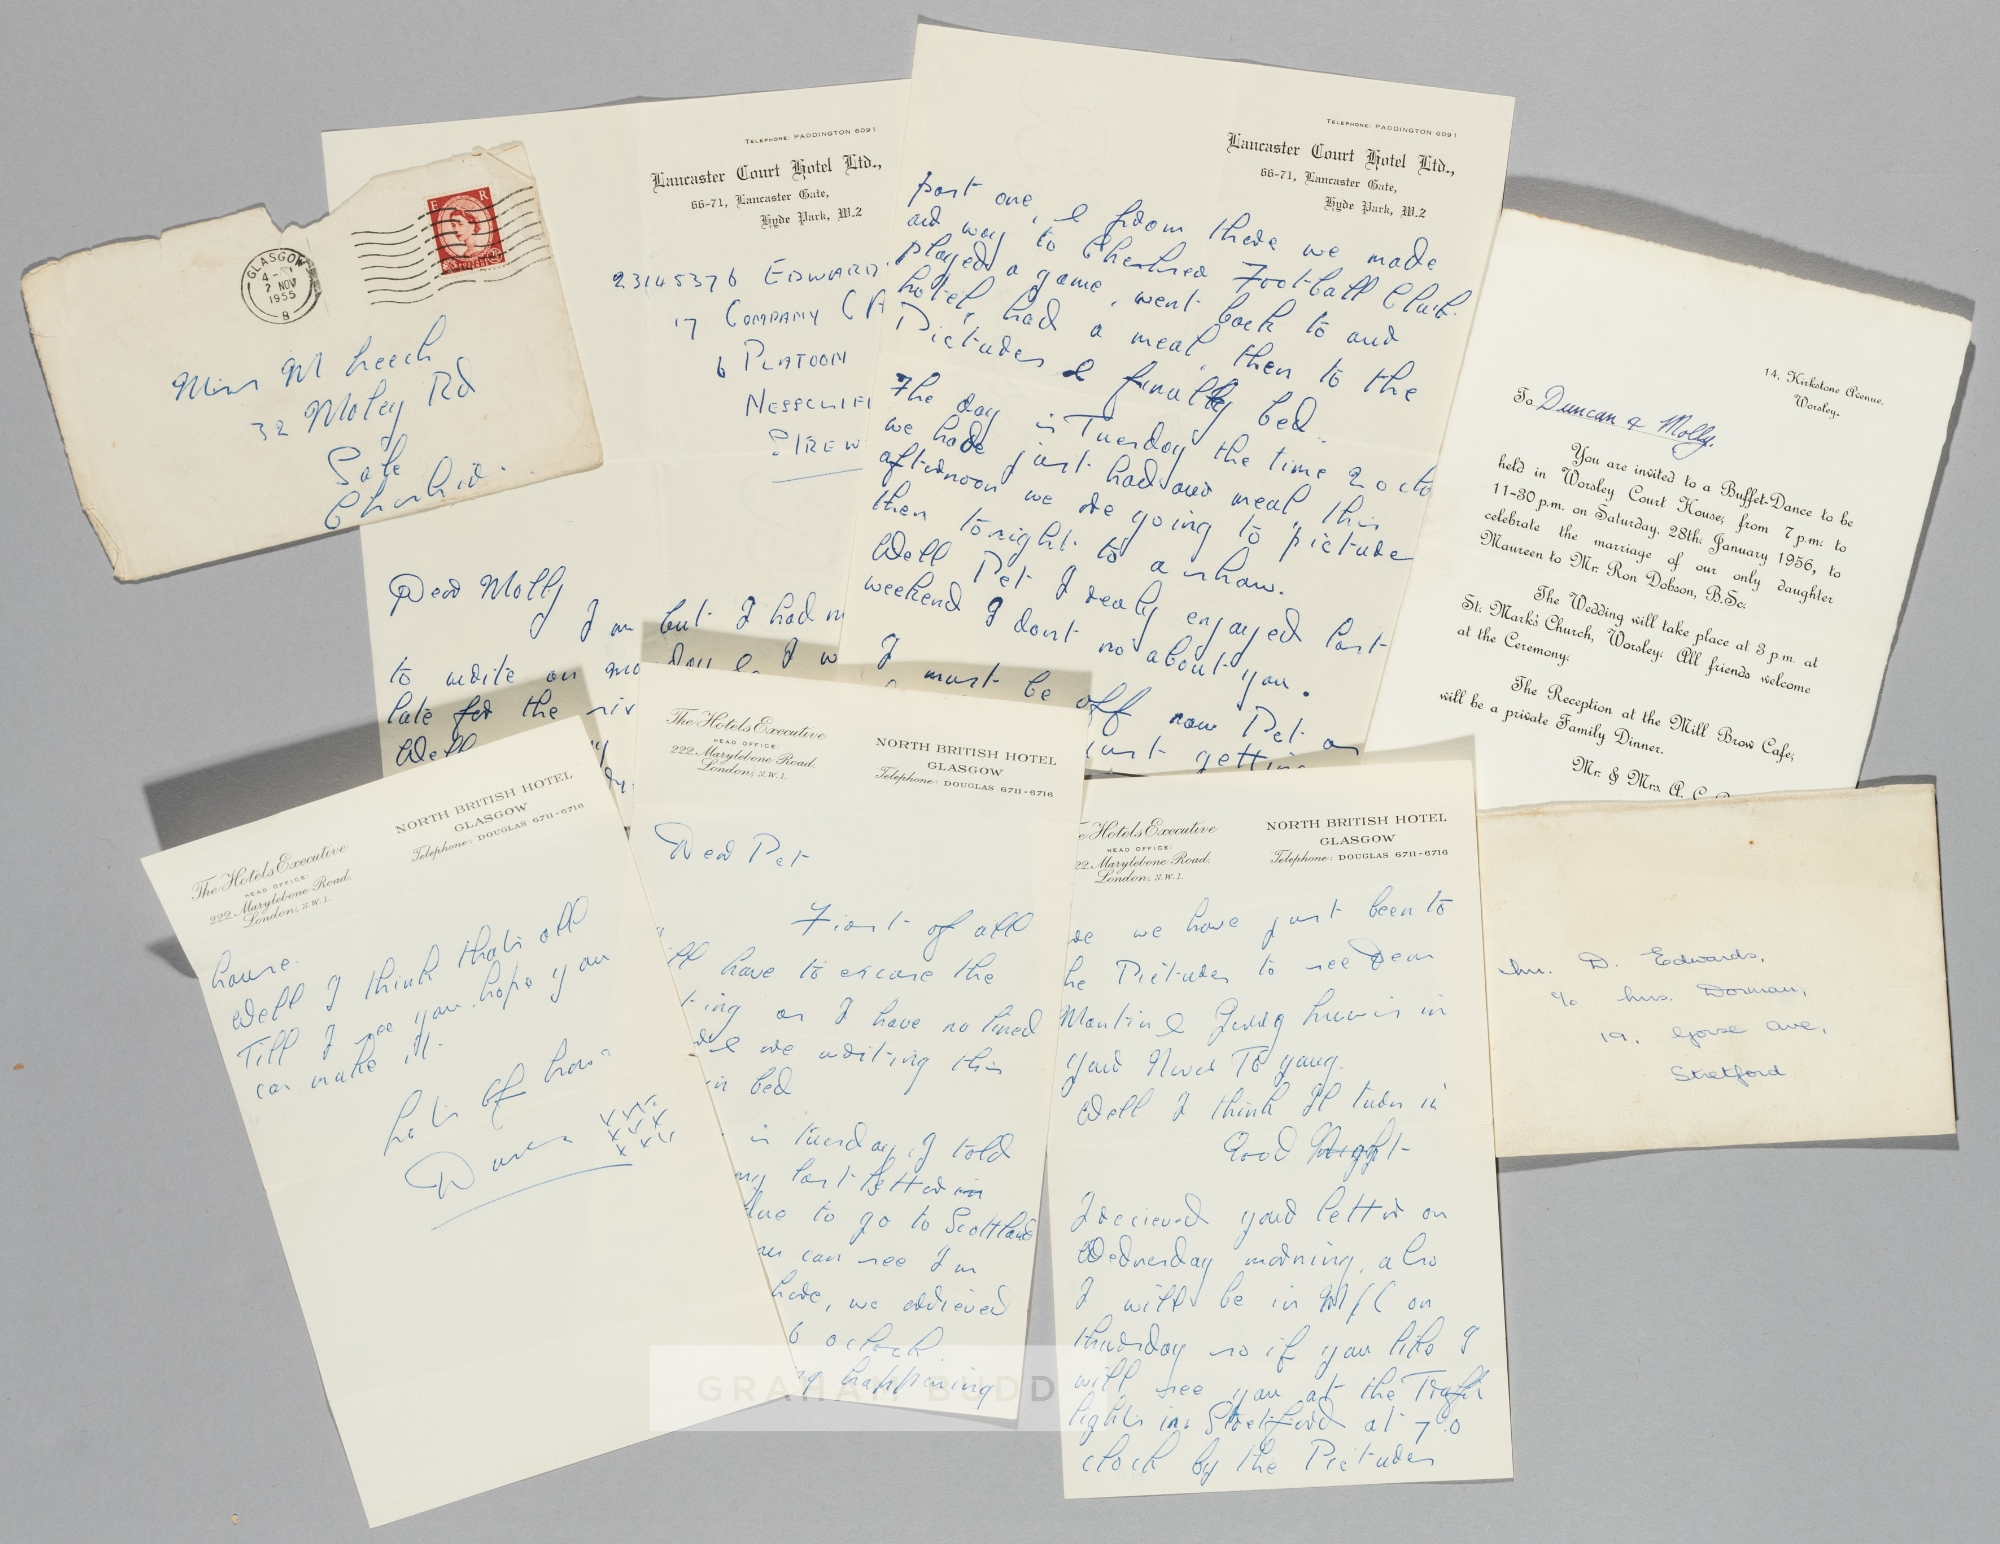 GLASGOW
4-
2 NOV
1955
8
E R
Miss M Leech
32 Moley Rd
Sale
Cheshire.
TELEPHONE: PADDINGTON 6091
Lancaster Court Hotel Ltd.,
66-71, Lancaster Gate,
Hyde Park, W.2
23145376 EDWARDS
17 COMPANY
6 PLATOON
NESSCLIF
Dear Molly
I am but I had n
to write on mo
late for the
Well
TELEPHONE: PADDINGTON 6091
Lancaster Court Hotel Ltd.,
66-71, Lancaster Gate,
Hyde Park, W.2
past one, & from there we made
our way to Chelsea Football Club.
played a game, went back to our
hotel, had a meal, then to the
Pictures & finally bed.
The day is Tuesday the time 2 oclo
we have just had our meal this
afternoon we are going to picture
then tonight to a show.
Well Pet I realy enjoyed last
weekend I dont no about you.
I must be off now Pet as
just getting
14, Kirkstone Avenue,
Worsley.
To Duncan & Molly.
You are invited to a Buffet-Dance to be
held in Worsley Court House, from 7 p.m. to
11-30 p.m. on Saturday, 28th. January 1956, to
celebrate the marriage of our only daughter
Maureen to Mr. Ron Dobson, B.Sc.
The Wedding will take place at 3 p.m. at
St. Mark's Church, Worsley. All friends welcome
at the Ceremony.
The Reception at the Mill Brow Cafe,
will be a private Family Dinner.
Mr. & Mrs. A. C.
The Hotels Executive
HEAD OFFICE:
222, Marylebone Road,
London, N.W.1.
NORTH BRITISH HOTEL
GLASGOW
Telephone: DOUGLAS 6711-6716
house.
Well I think thats all
Till I see you. hope you
can make it.
Lots of love
Duncan
x x x x x x x x
The Hotels Executive
HEAD OFFICE:
222, Marylebone Road,
London, N.W.1.
NORTH BRITISH HOTEL
GLASGOW
Telephone: DOUGLAS 6711-6716
Dear Pet
First of all
ll have to excuse the
ting as I have no lined
& we writing this
in bed
is tuesday, I told
my last letter in
have to go to Scottland
can see Im
here, we arrieved
6 oclock
ng happining
e Hotels Executive
HEAD OFFICE:
22, Marylebone Road,
London, N.W.1.
NORTH BRITISH HOTEL
GLASGOW
Telephone: DOUGLAS 6711-6716
we have just been to
he Pictures to see Dean
Martin & Jerry Lewis in
your Never To young.
Well I think Ill turn in
Good Night
I recieved your letter on
Wednesday morning, also
I will be in M/C on
thursday so if you like I
will see you at the Traffic
lights in Stretford at 7.0
clock by the Pictures
Mr. D. Edwards,
c/o Mrs. Dorman,
19, Gorse Ave,
Stretford
GRAHAM BUDD